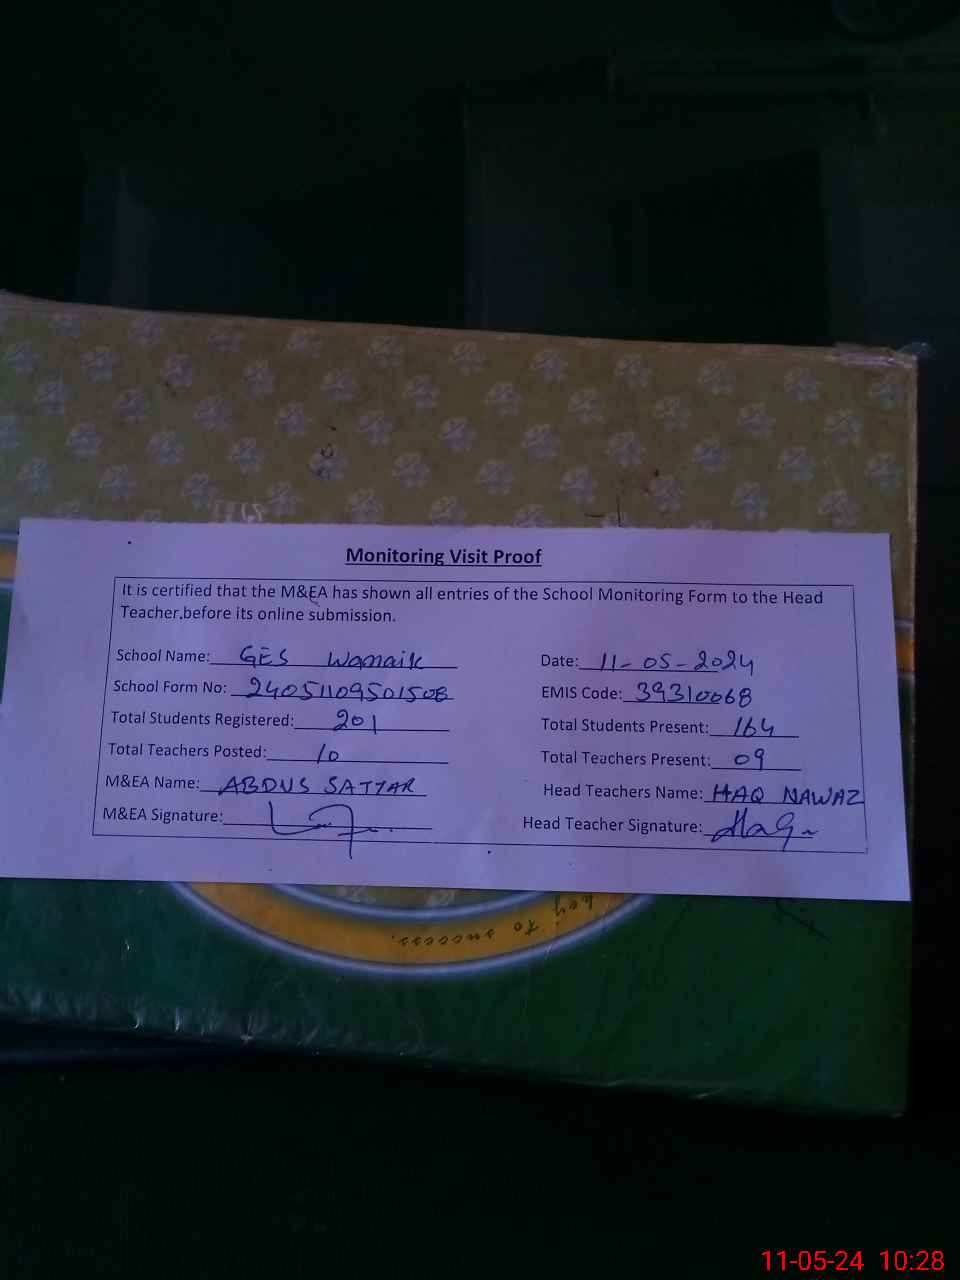 Monitoring Visit Proof
It is certified that the M&EA has shown all entries of the School Monitoring Form to the Head
Teacher,before its online submission.
School Name: GES Wamaik Date: 11-05-2024
School Form No: 24051109501508 EMIS Code: 39310068
Total Students Registered: 201 Total Students Present: 164
Total Teachers Posted: 10 Total Teachers Present: 09
M&EA Name: ABDUS SATTAR Head Teachers Name: HAQ NAWAZ
M&EA Signature: Head Teacher Signature:
key to success.
11-05-24 10:28